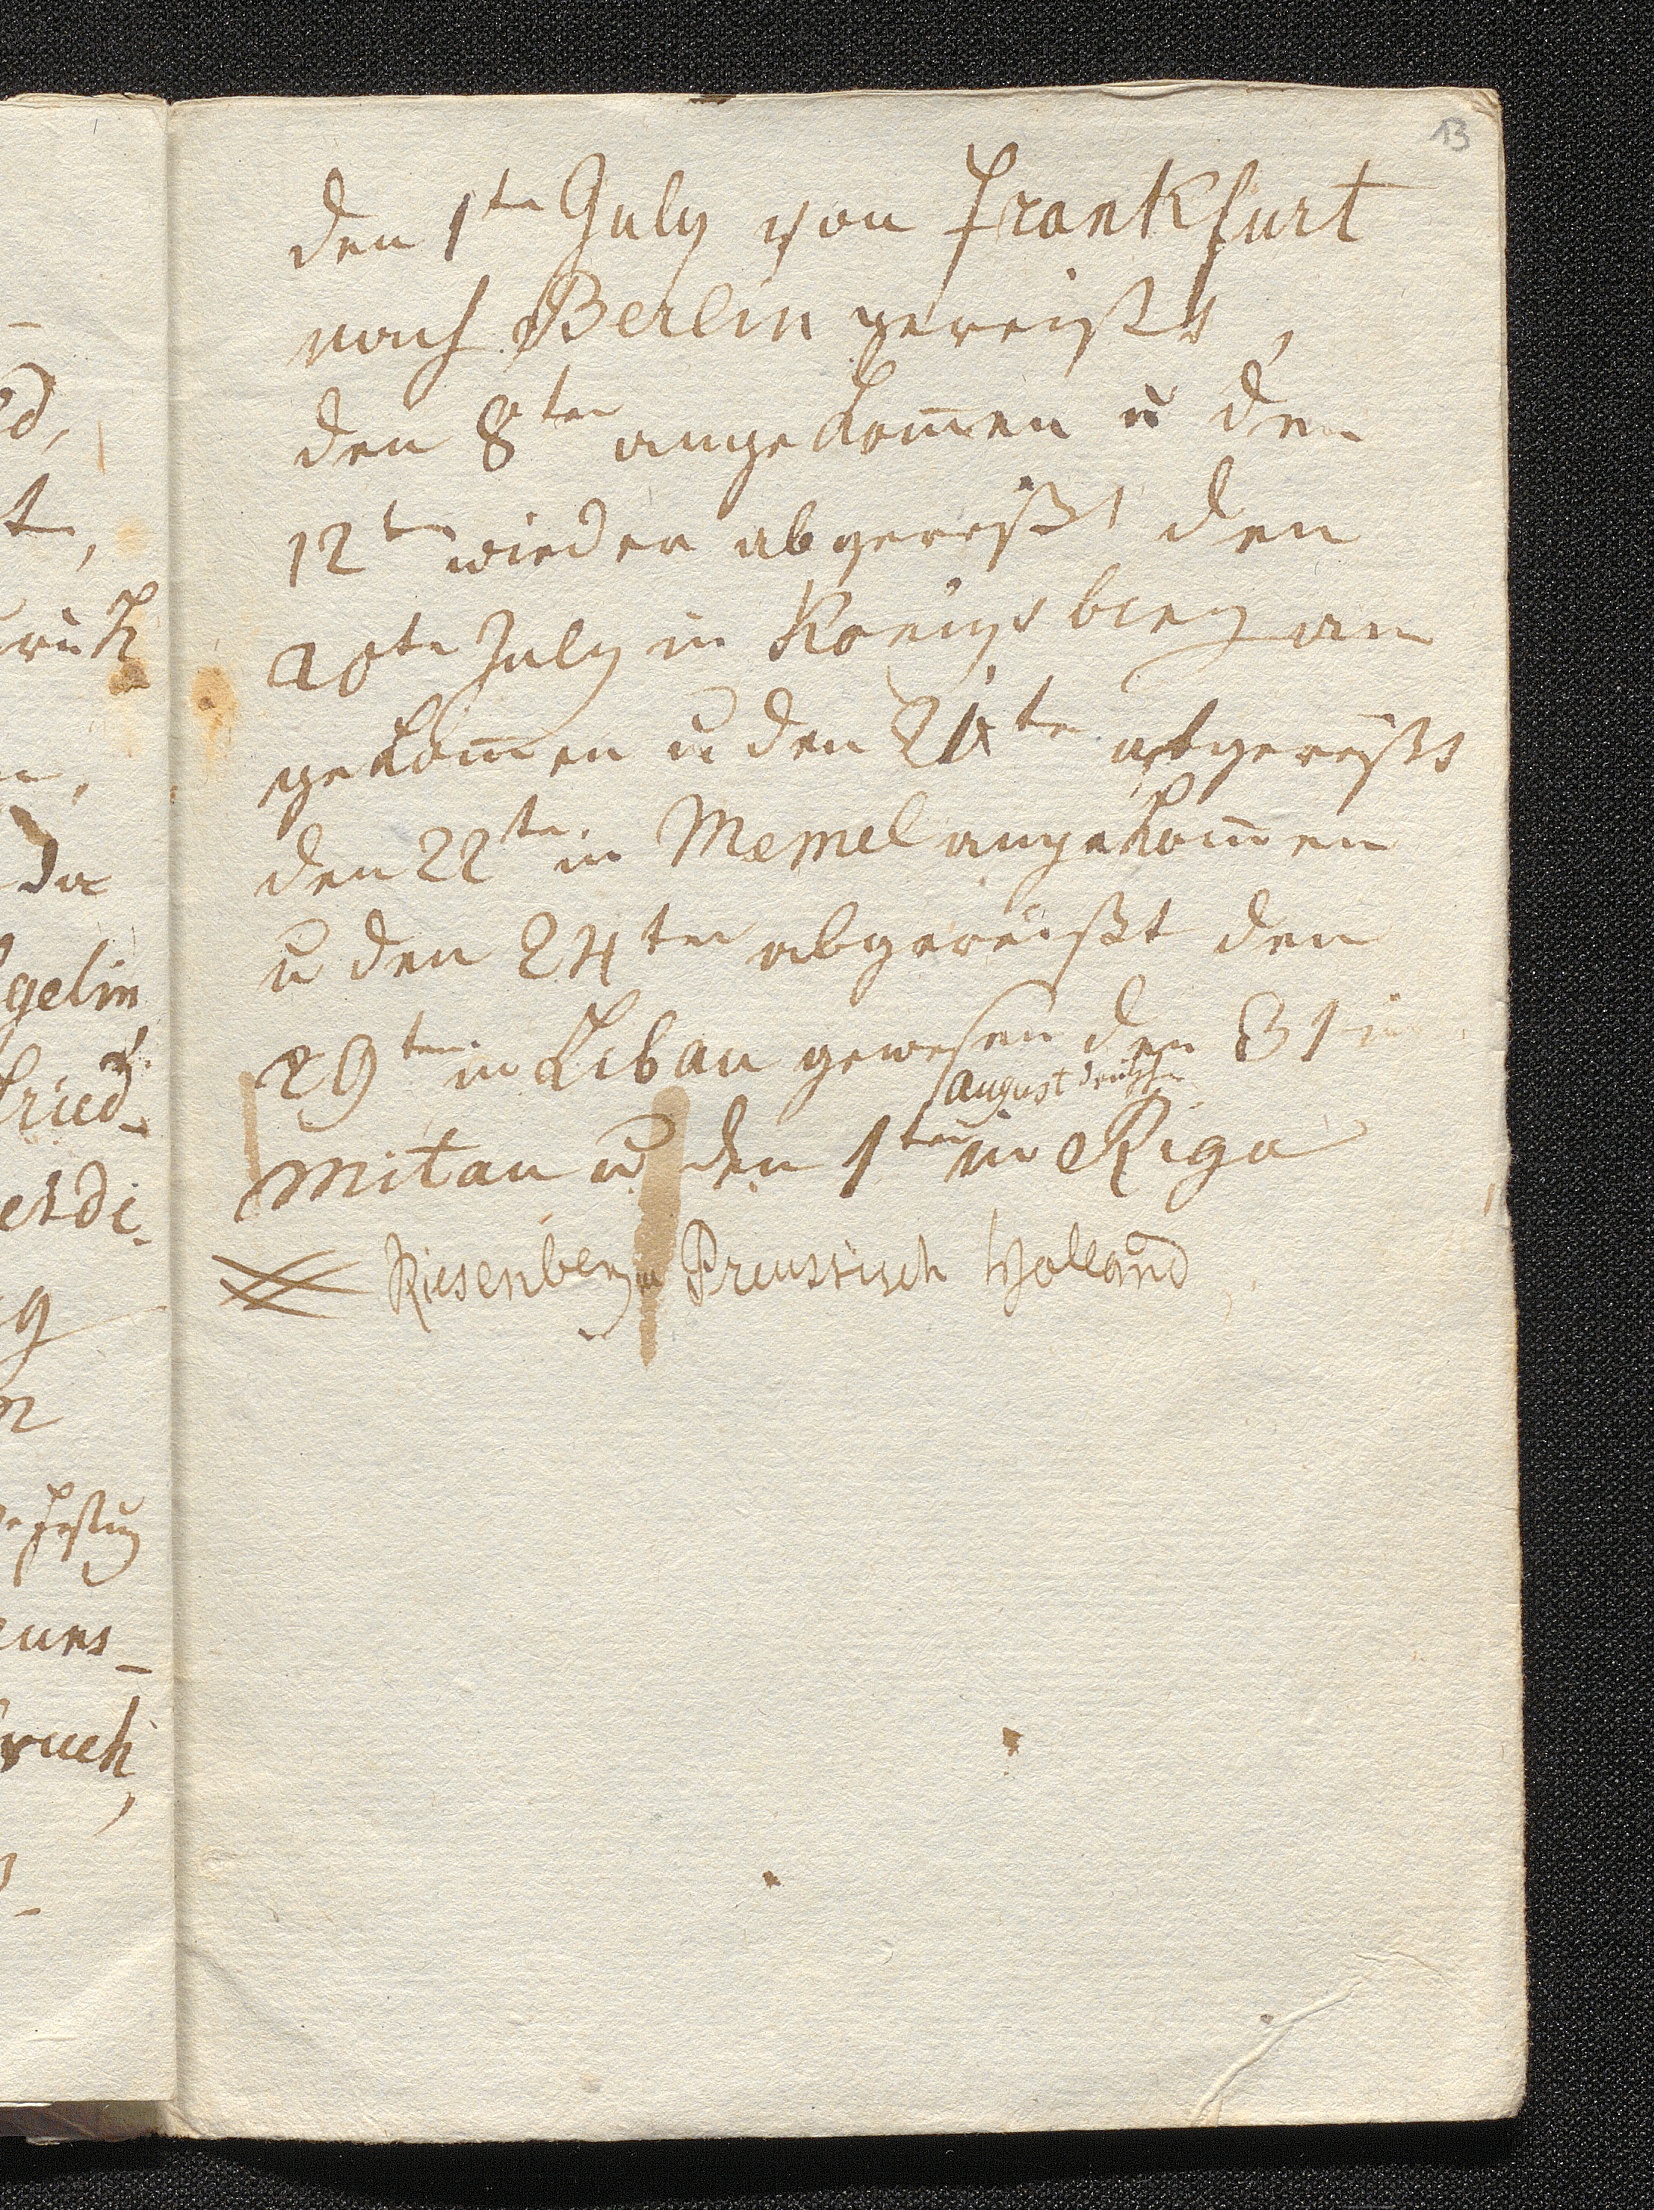 13
den 1ten July von Frankfurt
nach Berlin gereißt,
den 8ten angekom̄en u den
12ten wieder abgereißt den
20ten July in Koenigsberg an
gekom̄en u den 21ten abgereißt
den 22ten in Memel angekom̄en
u den 24ten abgereißt den
29ten in Libau gewesen den 31 in
august
Mitau u den 1ten in Riga
Riesenberg u Preussisch Holland